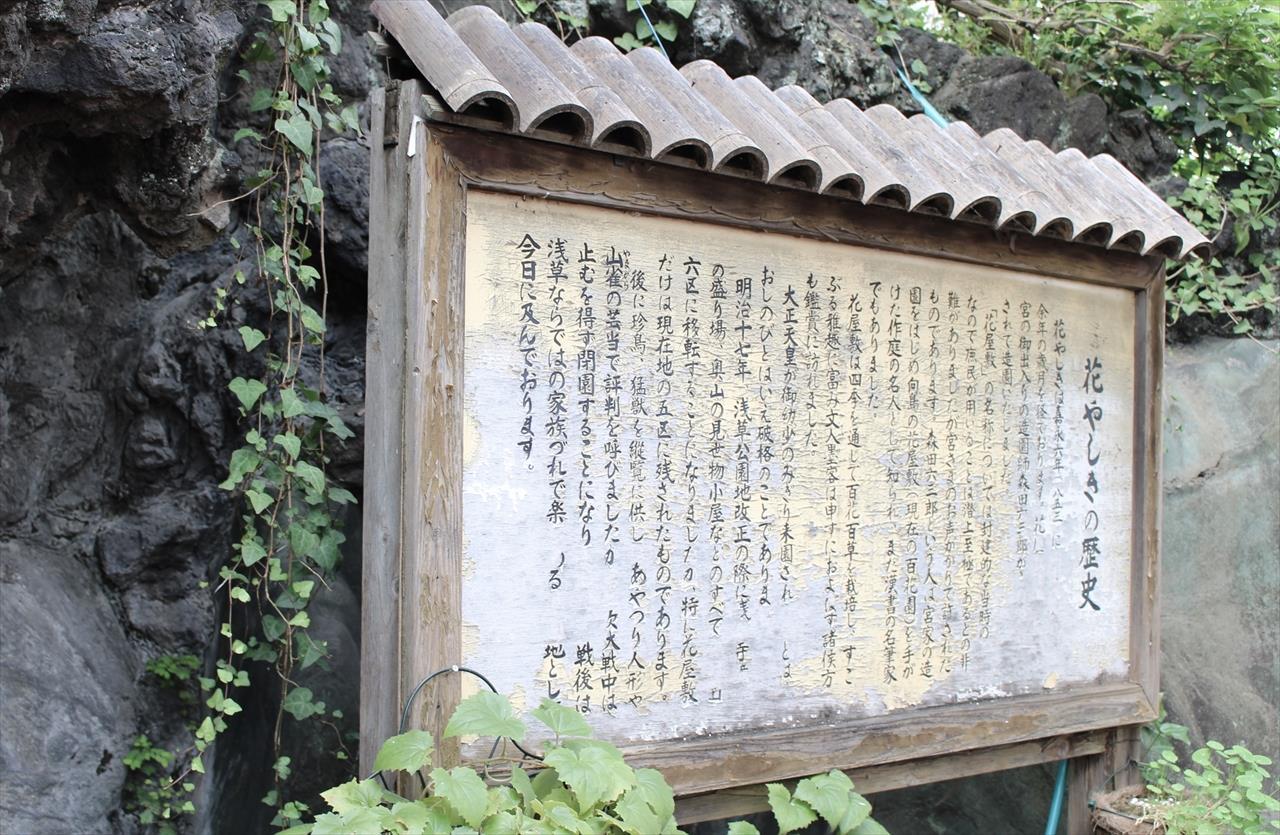 花やしきの歴史
花やしきは嘉永六年一八五三に
余年の歳月を経ております。花
宮の御出入りの造園師森田六三郎が
されて造園いたしました。
「花屋敷」の名称については封建的な当時の
なので庶民が用いることは潜上至極であるとの非
難がありましたが宮さまのお声がかりで許された
ものであります。森田六三郎という人は宮家の造
園をはじめ向島の花屋敷（現在の百花園）を手が
けた作庭の名人として知られ、また漢書の名筆家
でもありました。
花屋敷は四令を通して百花百草を栽培し、すこ
ぶる雅趣に富み文人墨客は申すにおよばず諸侯方
も鑑賞に訪れました。
大正天皇が御幼少のみぎり来園され
おしのびとはいえ破格のことでありま
明治十七年、浅草公園地改正の際に
の盛り場、奥山の見世物小屋などのすべて
六区に移転することになりましたが、特に花屋敷
だけは現在地の五区に残されたものであります。
後に珍鳥、猛獣を縦覧に供し、あやつり人形や
山雀の芸当で評判を呼びましたが 大戦中は
止むを得ず閉園することになり 戦後は
浅草ならではの家族づれで楽 る 地とし
今日に及んでおります。